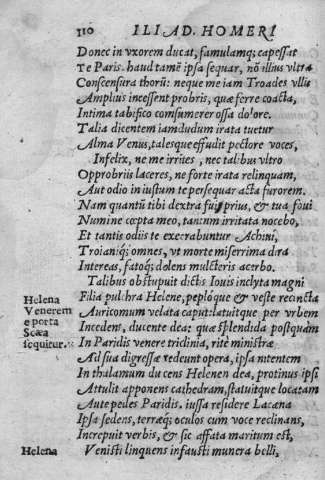 110 ILIAD. HOMERI
Donec in vxorem ducat, famulamq; capessat
Te Paris. haud tamẽ ipsa sequar, nõ illius vltra
Conscensura thorũ: neque me iam Troades vllis
Amplius incessent probris, quæ ferre coacta,
Intima tabifico consumerer ossa dolore.
Talia dicentem iamdudum irata tuetur
Alma Venus, talesque effudit pectore voces,
Infelix, ne me irrites, nec talibus vltro
Opprobriis laceres, ne forte irata relinquam,
Aut odio iniustum te persequar acta furorem.
Nam quantũ tibi dextra fui prius, & tua foui
Numine cœpta meo, tantum irritata nocebo,
Et tantis odiis te execrabuntur Achiui,
Troianiq́; omnes, vt morte miserrima dira
Intereas, fatoq; dolens mulcteris acerbo.
Talibus obstupuit dictis Iouis inclyta magni
Filia pulchra Helene, peploq́ue & veste recincta
Auricomum velata caput: latuitque per vrbem
Incedens, ducente dea: quæ splendida postquam
In Paridis venere triclinia, rite ministræ
Ad sua digressæ redeunt opera, ipsa nitentem
In thalamum ducens Helenen dea, protinus ipsi
Attulit apponens cathedram, statuitque locatam
Ante pedes Paridis. iussa residere Lacæna
Ipsa sedens, terræq; oculos cum voce reclinans,
Increpuit verbis, & sic affata maritum est,
Venisti linquens infausti munera belli,
Helena
Venerem
e porta
Scæa
sequitur.
Helena